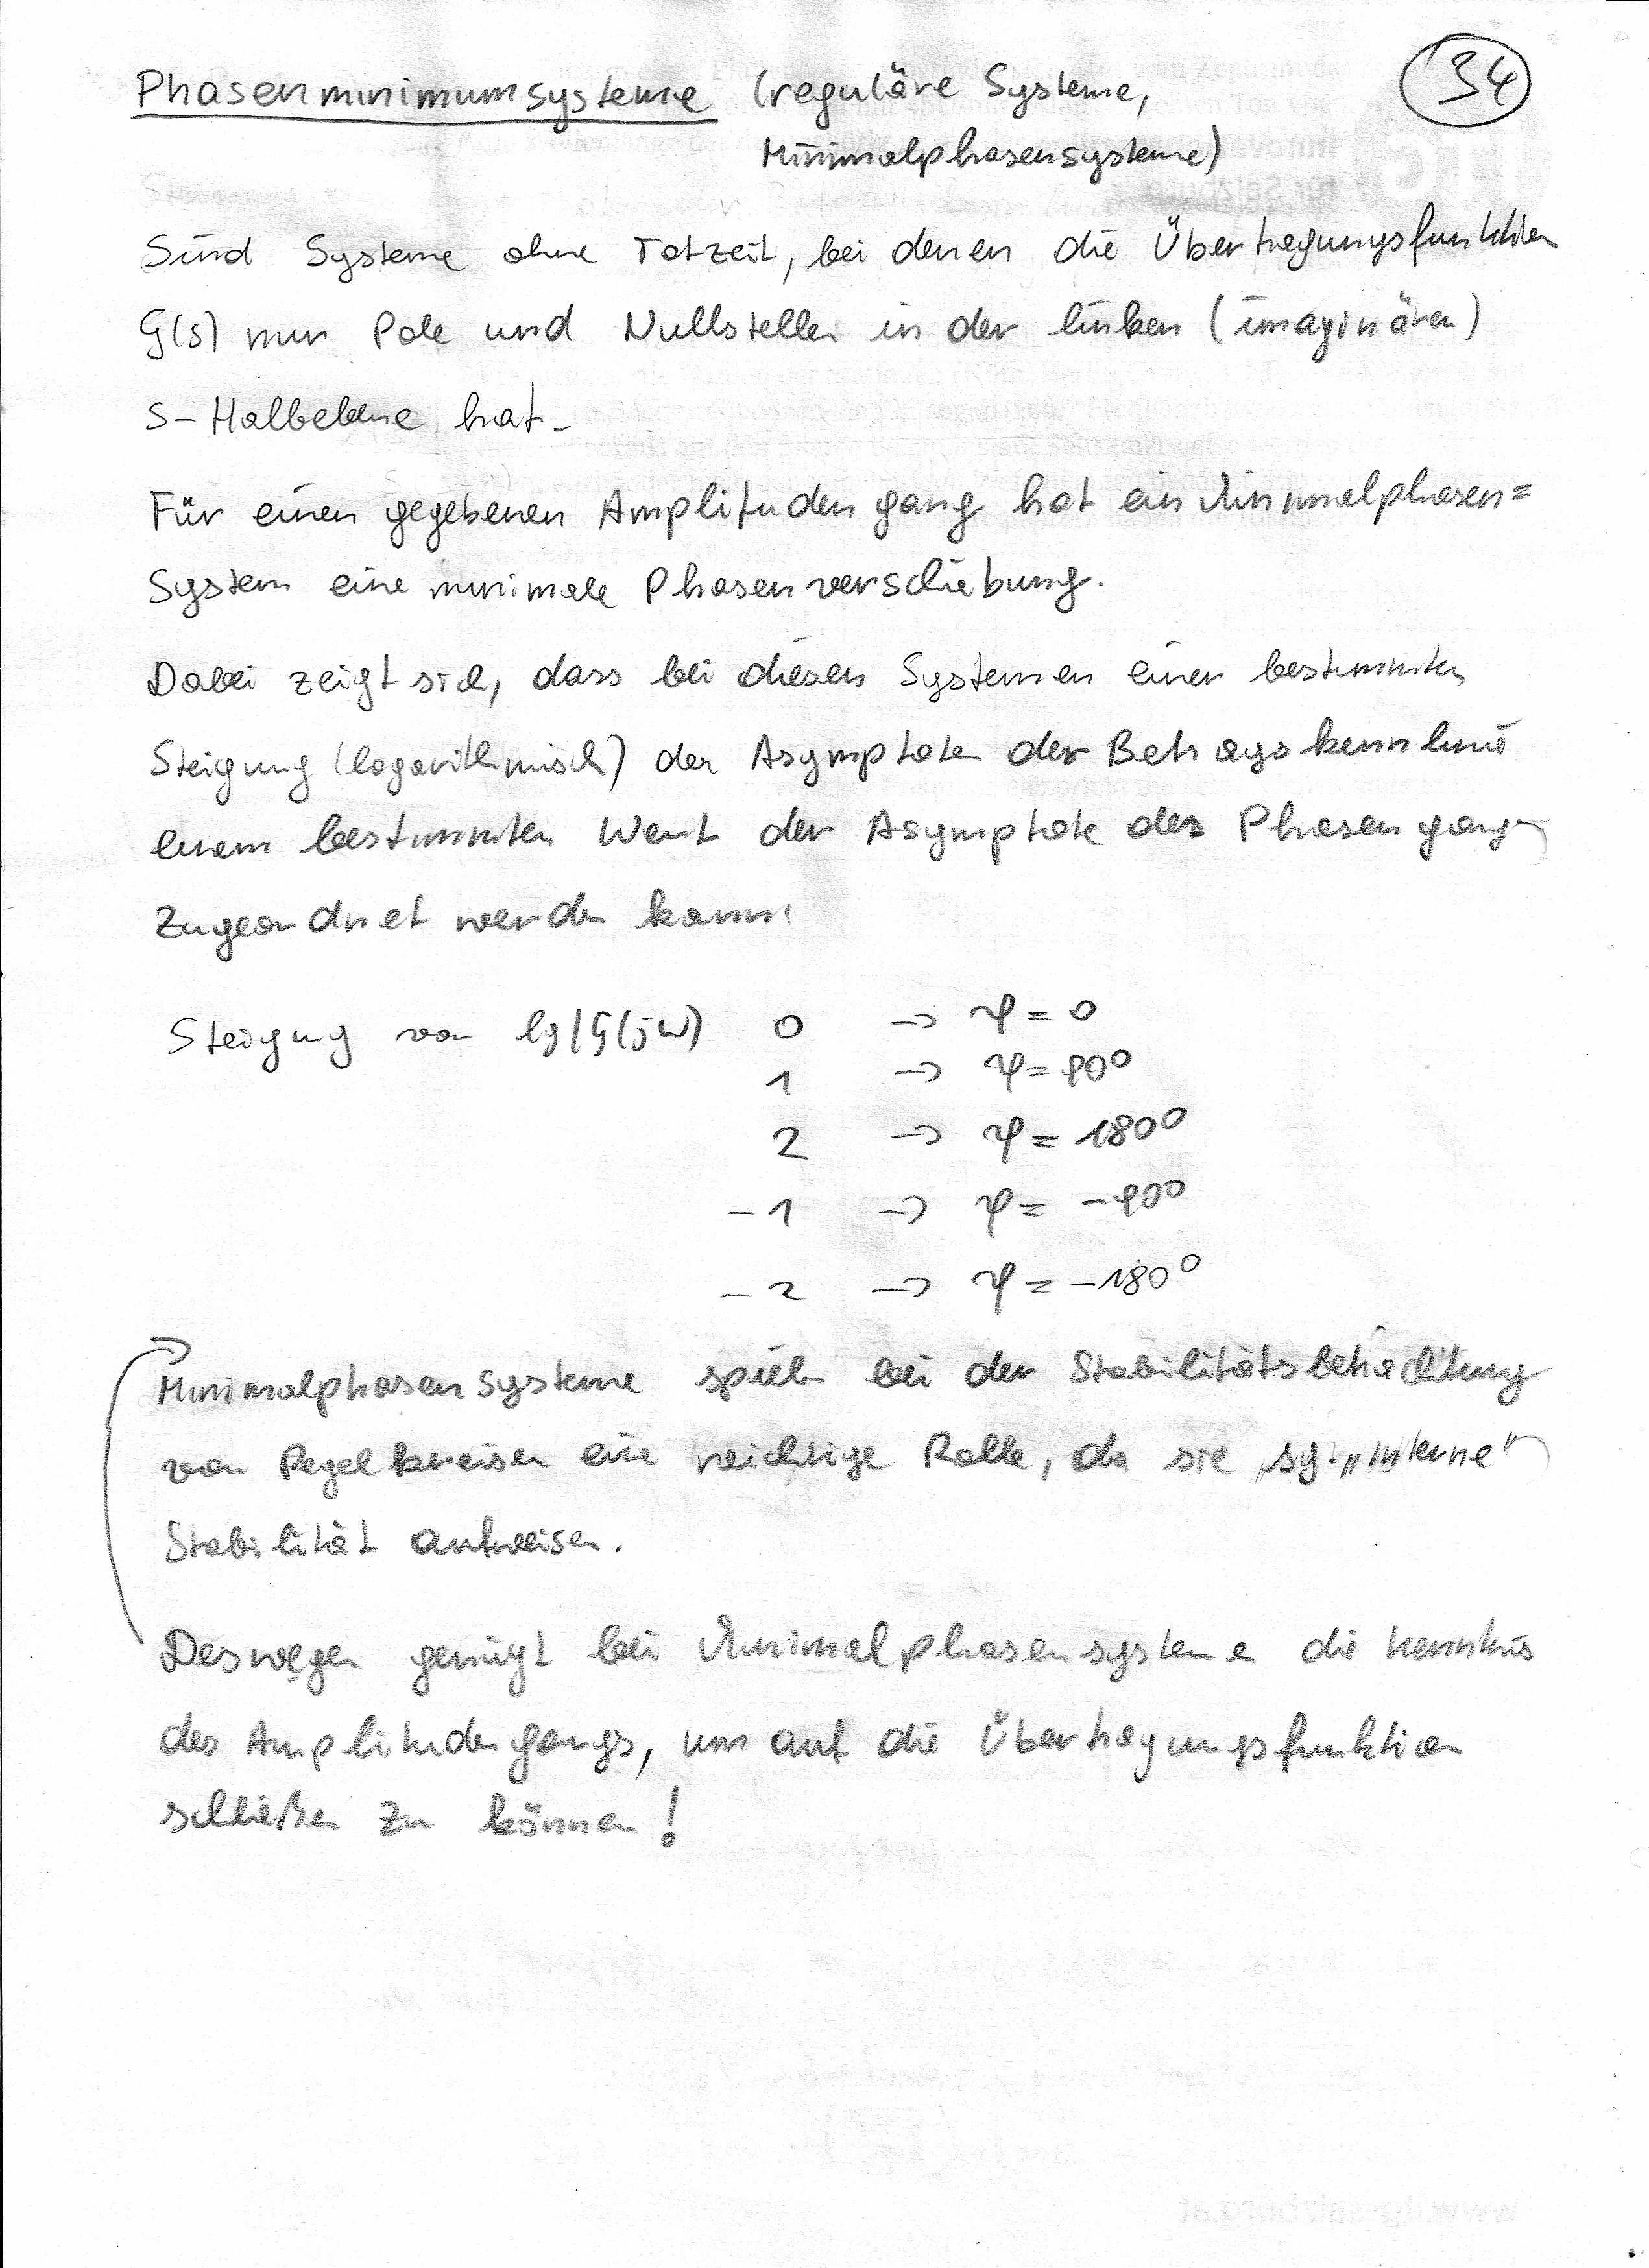 Phasenminimumsysteme (reguläre Systeme, 34
Minimalphasensysteme)
Sind Systeme ohne Totzeit, bei denen die Übertragungsfunktion
G(s) nur Pole und Nullstellen in der linken (imaginären)
s-Halbebene hat.
Für einen gegebenen Amplitudengang hat ein Minimalphasen=
System eine minimale Phasenverschiebung.
Dabei zeigt sich, dass bei diesen Systemen einer bestimmten
Steigung (logarithmisch) der Asymptoten der Betragskennlinie
einem bestimmten Wert der Asymptote des Phasengangs
zugeordnet werden kann:
Steigung von lg|G(jω) 0 → φ = 0
1 → φ = 90°
2 → φ = 180°
-1 → φ = -90°
-2 → φ = -180°
Minimalphasensysteme spielen bei der Stabilitätsbetrachtung
von Regelkreisen eine wichtige Rolle, da sie sg. „interne"
Stabilität aufweisen.
Deswegen genügt bei Minimalphasensysteme die Kenntnis
des Amplitudengangs, um auf die Übertragungsfunktion
schließen zu können!
für Salzburg
www.itg-salzburg.at